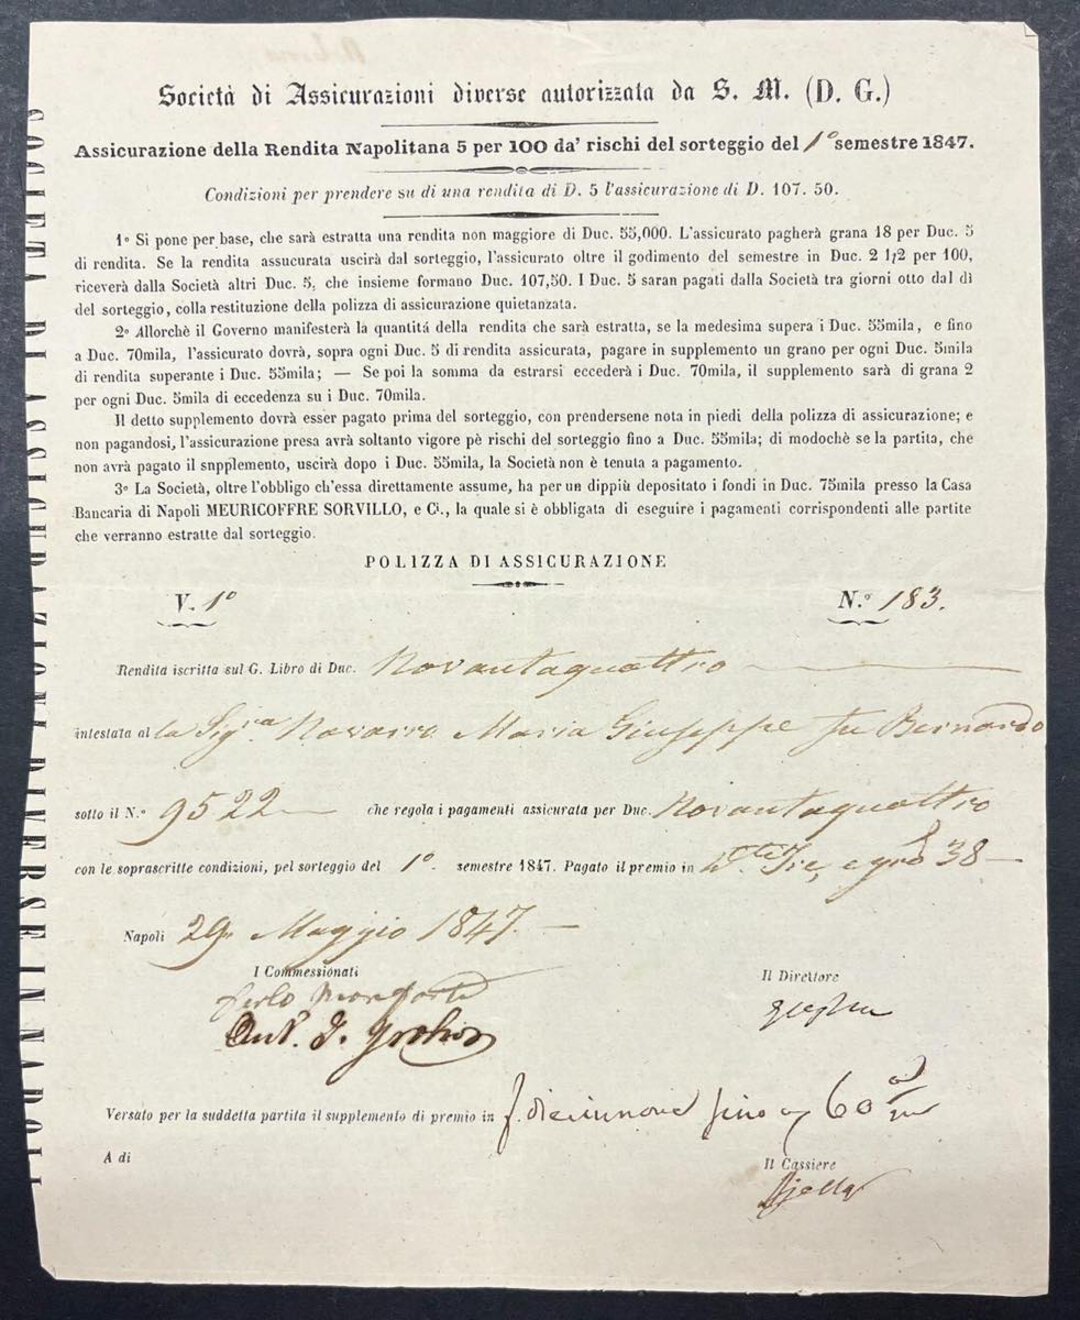 Società di Assicurazioni diverse autorizzata da S. M. (D. G.)
Assicurazione della Rendita Napolitana 5 per 100 da' rischi del sorteggio del 1º semestre 1847.
Condizioni per prendere su di una rendita di D. 5 l'assicurazione di D. 107. 50.
1º Si pone per base, che sarà estratta una rendita non maggiore di Duc. 55,000. L'assicurato pagherà grana 18 per Duc. 5
di rendita. Se la rendita assucurata uscirà dal sorteggio, l'assicurato oltre il godimento del semestre in Duc. 2 1/2 per 100,
riceverà dalla Società altri Duc. 5, che insieme formano Duc. 107,50. I Duc. 5 saran pagati dalla Società tra giorni otto dal dì
del sorteggio, colla restituzione della polizza di assicurazione quietanzata.
2º Allorchè il Governo manifesterà la quantitá della rendita che sarà estratta, se la medesima supera i Duc. 55mila, e fino
a Duc. 70mila, l'assicurato dovrà, sopra ogni Duc. 5 di rendita assicurata, pagare in supplemento un grano per ogni Duc. 5mila
di rendita superante i Duc. 55mila; — Se poi la somma da estrarsi eccederà i Duc. 70mila, il supplemento sarà di grana 2
per ogni Duc. 5mila di eccedenza su i Duc. 70mila.
Il detto supplemento dovrà esser pagato prima del sorteggio, con prendersene nota in piedi della polizza di assicurazione; e
non pagandosi, l'assicurazione presa avrà soltanto vigore pè rischi del sorteggio fino a Duc. 55mila; di modochè se la partita, che
non avrà pagato il snpplemento, uscirà dopo i Duc. 55mila, la Società non è tenuta a pagamento.
3º La Società, oltre l'obbligo ch'essa direttamente assume, ha per un dippiù depositato i fondi in Duc. 75mila presso la Casa
Bancaria di Napoli MEURICOFFRE SORVILLO, e C., la quale si è obbligata di eseguire i pagamenti corrispondenti alle partite
che verranno estratte dal sorteggio.
POLIZZA DI ASSICURAZIONE
V. 1º N.º 183.
Rendita iscritta sul G. Libro di Duc. Novantaquattro
intestata al la Sig.ra Navarro Maria Giuseppe fu Bernardo
sotto il N.º 9522 che regola i pagamenti assicurata per Duc. Novantaquattro
con le soprascritte condizioni, pel sorteggio del 1º. semestre 1847. Pagato il premio in D.ti Tre, e gna 38
Napoli 29 Maggio 1847.
I Commessionati Il Direttore
Versato per la suddetta partita il supplemento di premio in g. diecinnove fino a 60
A di
Il Cassiere
SOCIETA DI ASSICURAZIONI DIVERSE IN NAPOLI